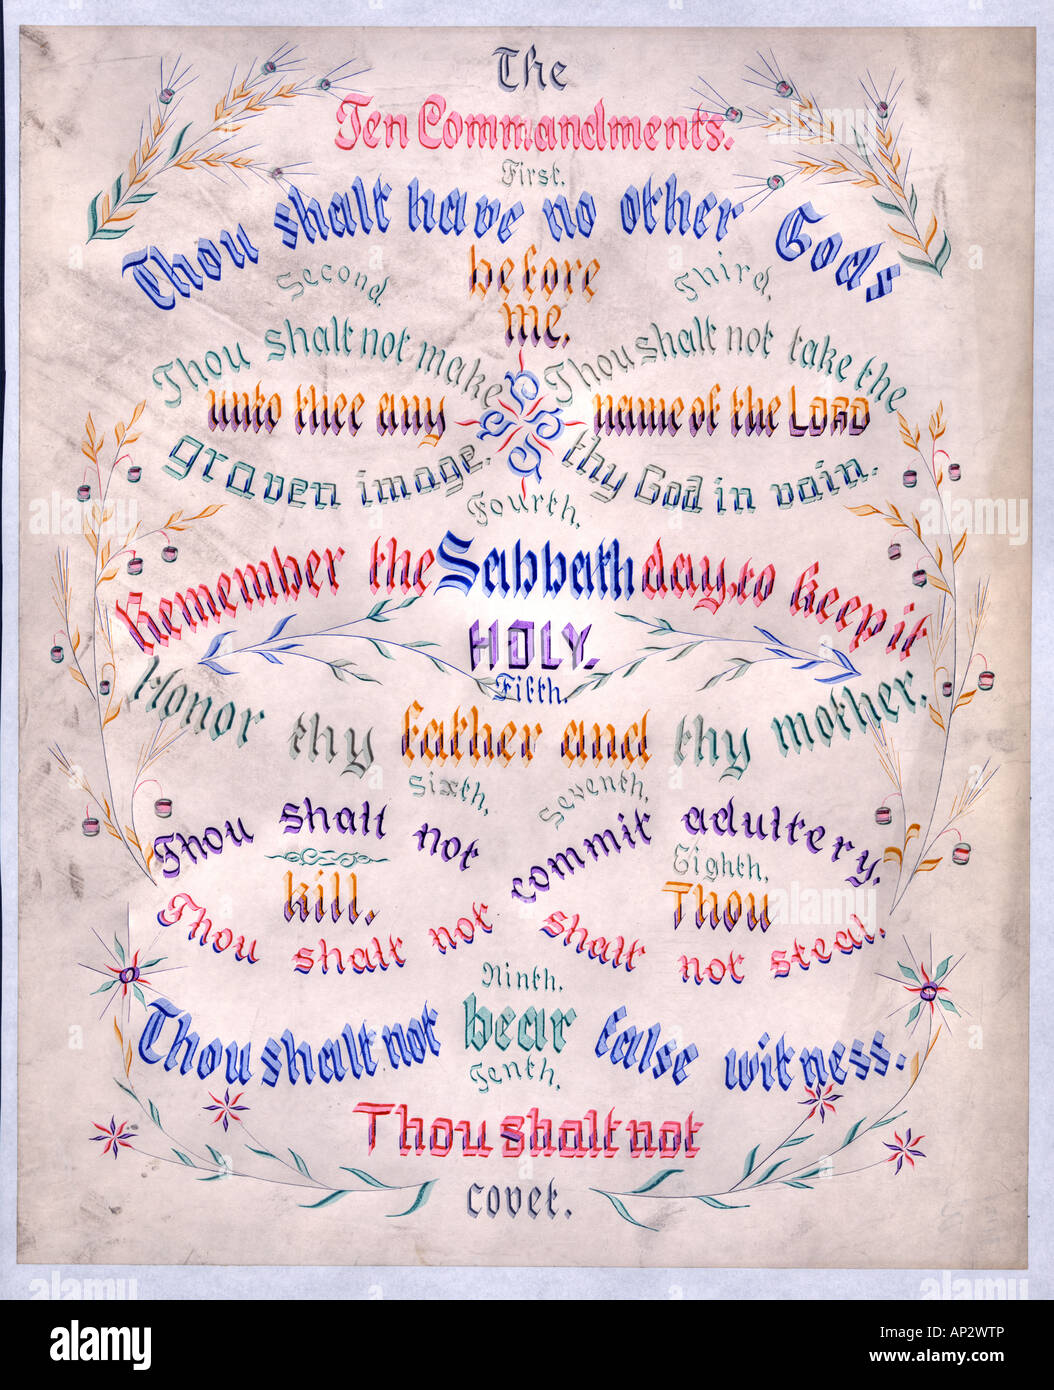 The
Ten Commandments.
First.
Thou shalt have no other Gods
before
me.
Second.
Thou shalt not make
unto thee any
graven image.
Third.
Thou shalt not take the
name of the LORD
thy God in vain.
Fourth.
Remember the Sabbath day, to keep it
HOLY.
Fifth.
Honor thy father and thy mother.
Sixth.
Thou shalt not
kill.
Seventh.
Thou shalt not commit adultery.
Eighth.
Thou
shalt not steal.
Ninth.
Thou shalt not bear false witness.
Tenth.
Thou shalt not
covet.
alamy
alamy
Image ID: AP2WTP
www.alamy.com